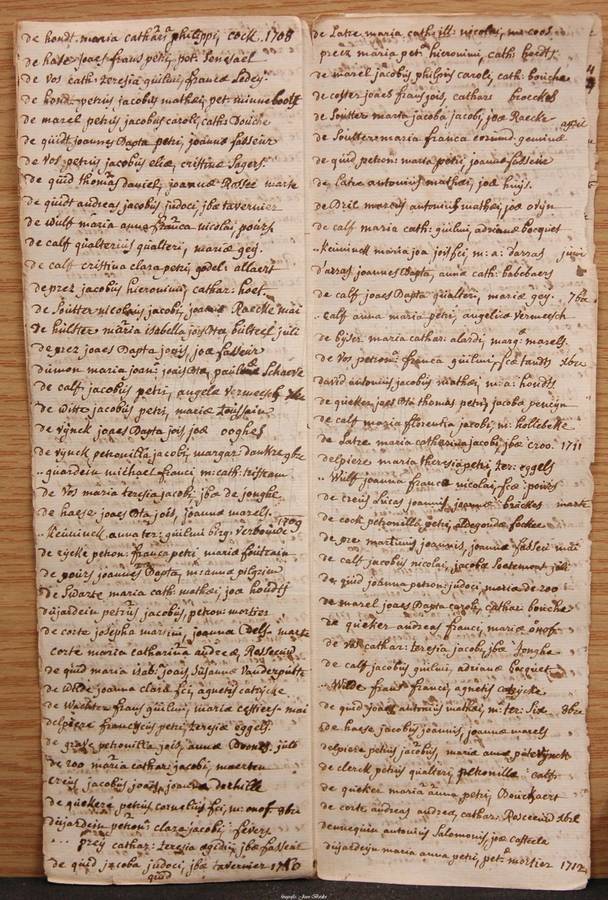 de hondt maria cathar philippi, cock. 1708
de hase joes frans petri,
de Vos cath: teresia guilmi, franca Ledey.
de hond petrus jacobus mathei, pet. minneboot
de marel petrus jacobus caroli, cath: Bouche
de quidt joannes Bapta petri, joanna fasseur
de Vos petrus jacobus eliæ, cristina Segers.
de quid thomas daniel, joanna Rosseé marte
de quidt andreas jacobus judoci, jba tavernier
de Wulf maria anna franca nicolai, pours
de calf qualterius qualteri, maria gey.
de calf cristina clara petri, godel: allaert
de prez jacobus hieronimi, cathar: hoet.
de Soutter nicolaus jacobi, joanna Raecke mai
de bulter maria isabella jois Bta, bulteel juli
de prez joaes Bapta jois, joa fasseur
dumon maria joan: jois Bta, paulina Schaere
de calf jacobus petri, angela Vermeesch
de Witte jacobus petri, maria Toussain
de Vynck joaes Bapta jois joa ooghes
de Vynck petronilla jacobi, margar: Dankre
.. quardein michael franci m: cath: tristram
de Vos maria teresia jacobi, jba de jonghe
de haese joaes Bta jois, joanna marels.
.. Reninck anna ter: guilmi 1709
de rycke petron: franca petri, maria fontain
de pours joannes Bapta, m: anna pilgrim
de Swarte maria cath: mathei, joa houdts
dujardein petrus jacobus, petron: mortier
de corte josepha martini, joanna Delf. marte
corte maria catharina andreæ, Rosseeuw
de quid maria isab: joais Susanna Vanderputte
de Wilde joanna clara fci, agnetis catrycke
de Wachter frans guilmi, maria mai
delpiere franciscus petri, teresia eggels.
de grave petronilla jois, anna juli
de roo maria cathar: jacobi, maerten
creus jacobus joais, joanna dochille
de quekere petrus cornelius fci, m: onof 8bre
dujardein petron: clara jacobi, fevers
... prey cathar: teresia egidii, jba fasseur
de quid jacoba judoci, jba tavernier 1710
quid
de Latre maria cath: ill: nicolai, m: coos.
prez maria pet: hieronimi, cath: hoedt
de marel jacobus philpus caroli, cath: bouche
de coster joaes franfois, cathar: brockes
de Soutter maria jacoba jacobi, joa Raecke april
de Soutter maria franca
de quid petron: maria petri, joanna fasseur
de Latre antonius mathei, joa huys.
de Bril marcus antonius mathei, joa oryn
de calf maria cath: guilmi, adriana bocquet
.. Reninck maria joa jois fci m: a: Darras juni
Darras joannes Bapta, anna cath: babebaers
de calf joaes Bapta qualteri, maria gey. 7bre
.. calf anna maria petri, angelica Vermeesch
de byser maria cathar: alardi, marg: marels.
de Vos petron: franca guilmi, xbre
david antonius jacobus mathei, m: a: houdts
de queker joes Bta thomas petri, jacoba
de calf maria florentia jacobi, m: hollebeke
de Latre maria catherina jacobi, jba croo. 1711
delpiere maria theresia petri, ter: eggels
.. Wulf joanna franca nicolai, pours
de creus elias joannis, joanna brockes marte
de cock petronilla petri, fockee
de pre martinus joannis, joanna fasseu mai
de calf jacobus nicolai, jacoba Soetemont juli
de quid joanna petron: judoci, maria de roo
de marel joaes Bapta caroli, cathar: bouche
de queker andreas franci, maria onof
de Vos cathar: teresia jacobi, jba Jonghe
de calf jacobus guilmi, adriana bocquet
.. Wilde frans franci, agnetis catrycke
de quid joaes antonius mathei, m: ter: Six 8bre
de haese jacobus joannis, joanna marels
delpiere petrus jacobus, maria anna
de clerck petrus qualteri, petronilla calf.
de queker maria anna petri, Bouckaert
de corte andreas andrea, cathar: Rosseeuw xbre
dennequin antonius Salomonis, joa casteela
dujardejn maria anna petri, pet: mortier 1712